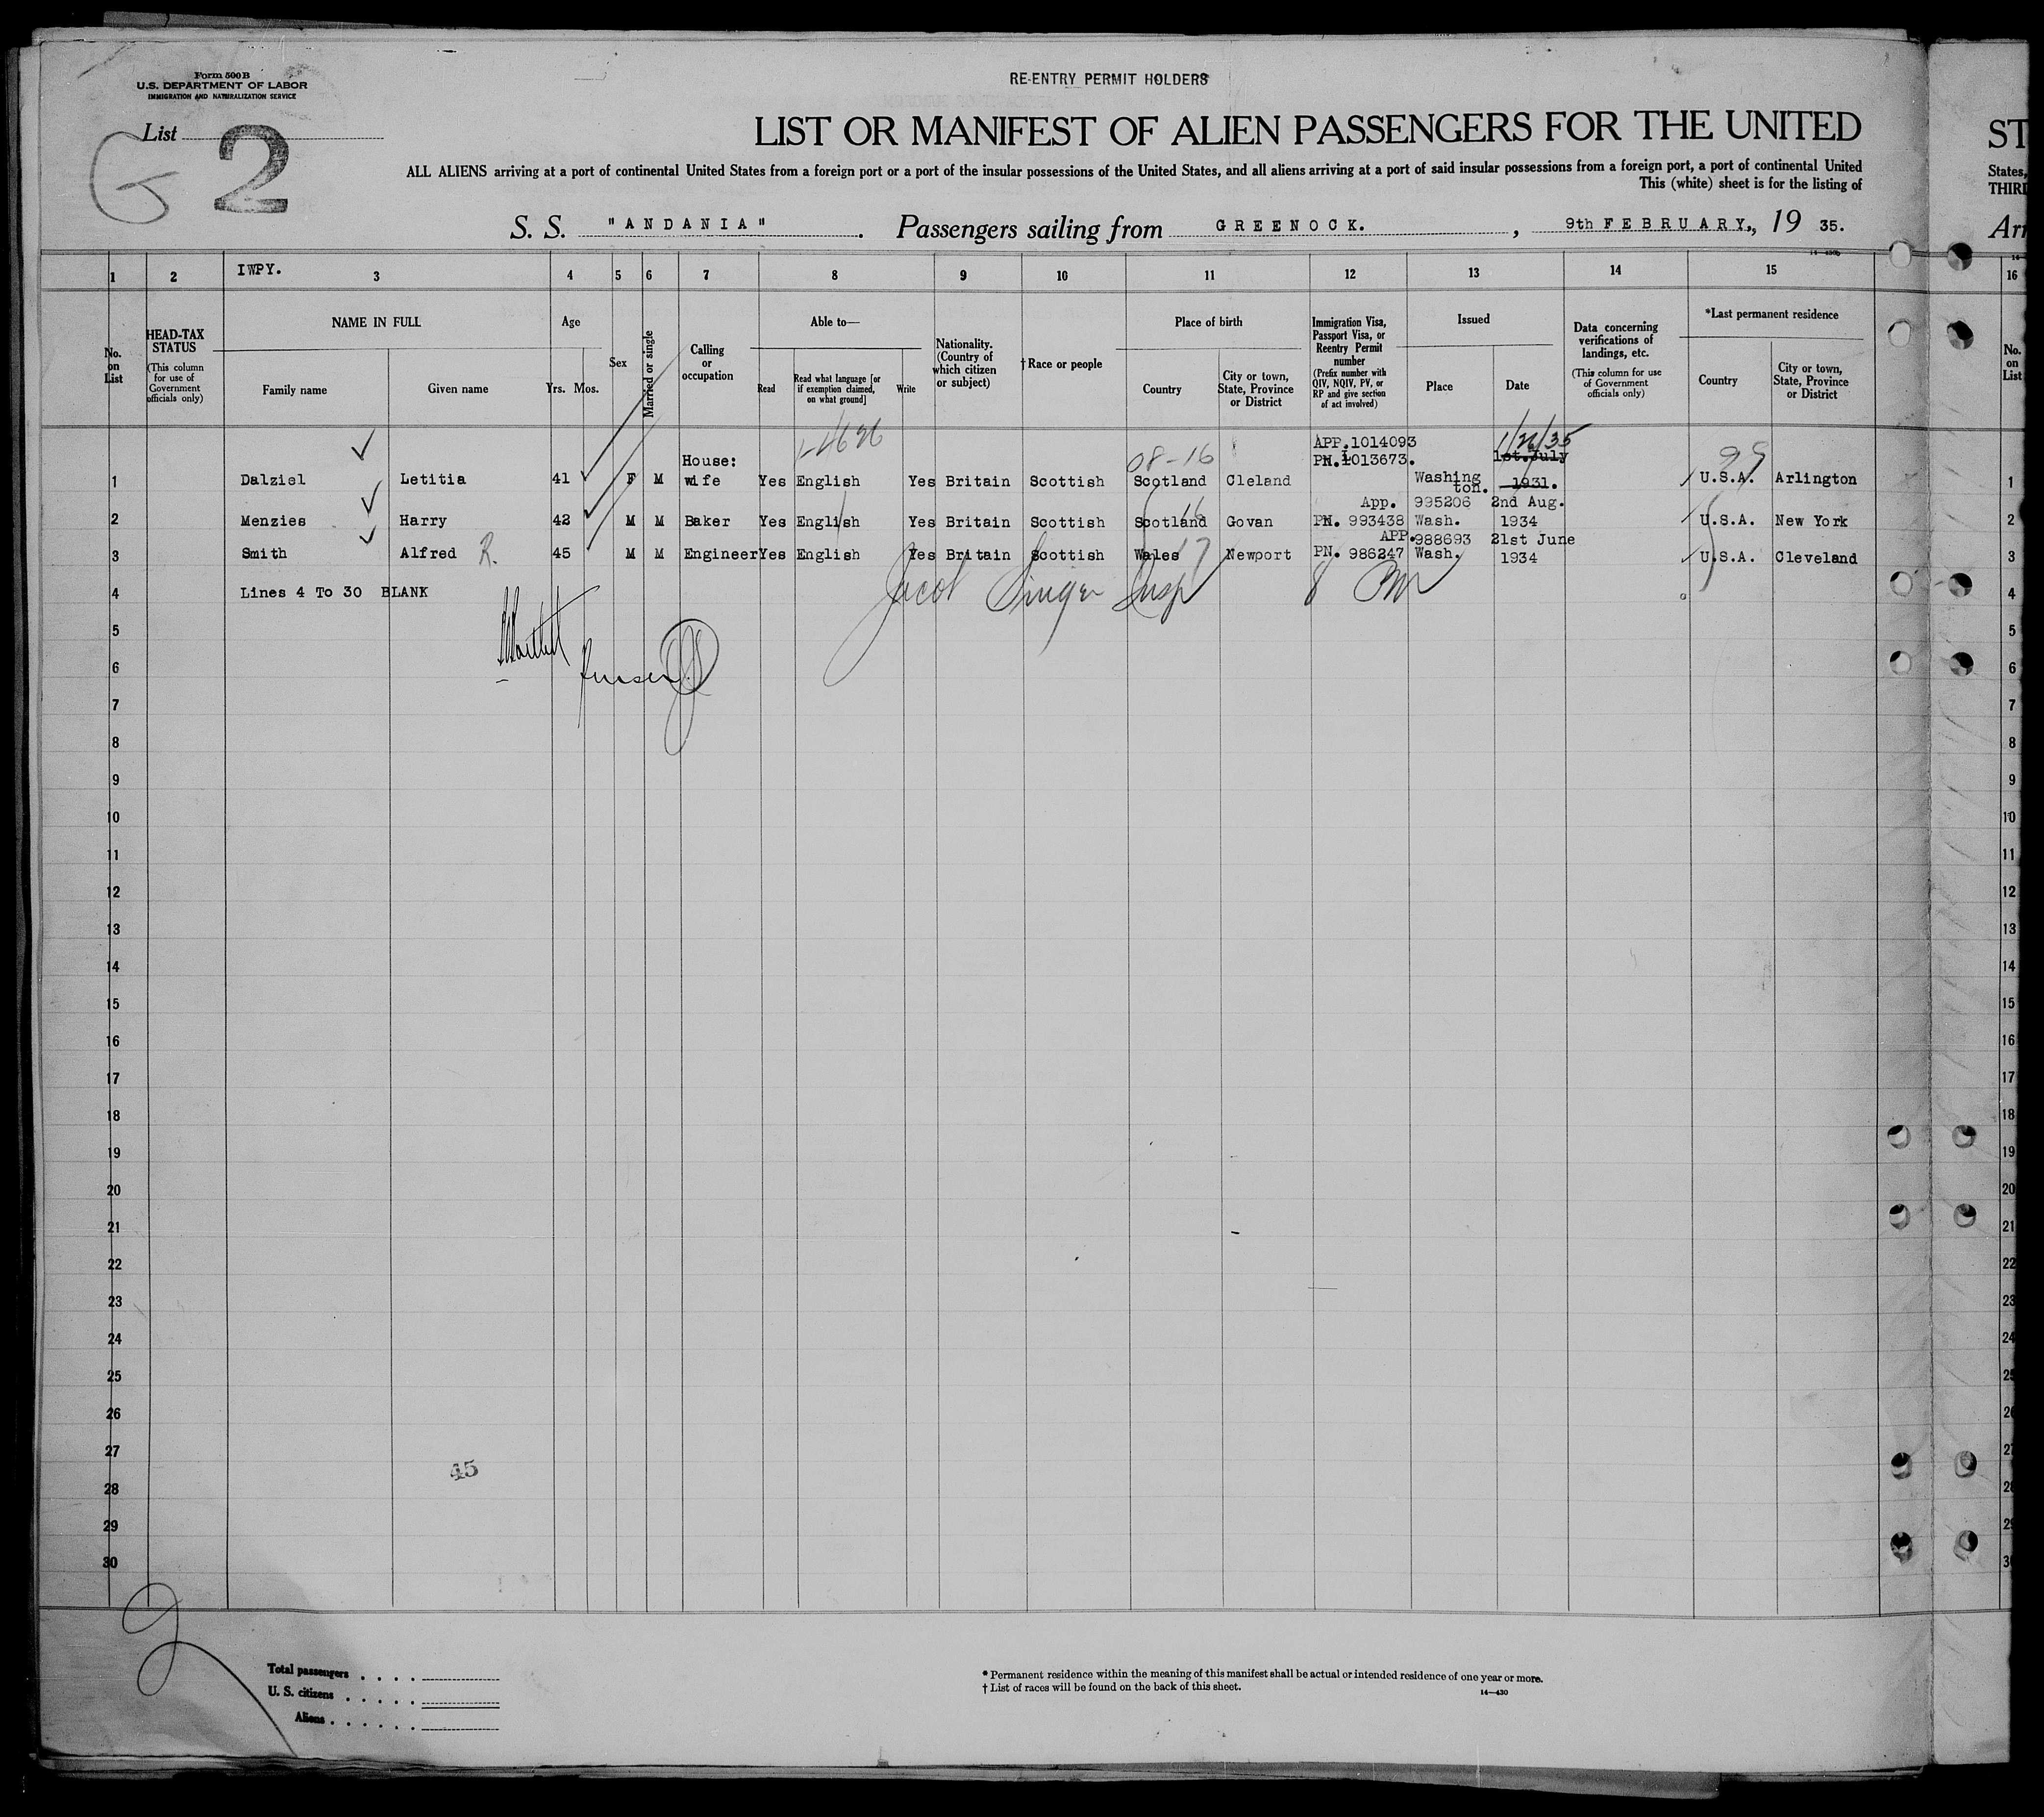 Form 500B
U.S. DEPARTMENT OF LABOR
IMMIGRATION AND NATURALIZATION SERVICE
RE-ENTRY PERMIT HOLDERS
List
G 2
LIST OR MANIFEST OF ALIEN PASSENGERS FOR THE UNITED
ST
ALL ALIENS arriving at a port of continental United States from a foreign port or a port of the insular possessions of the United States, and all aliens arriving at a port of said insular possessions from a foreign port, a port of continental United
States,
This (white) sheet is for the listing of
THIRD
S. S. "ANDANIA". Passengers sailing from GREENOCK., 9th FEBRUARY., 19 35.
Arr
14-430b
1 2 IWPY. 3 4 5 6 7 8 9 10 11 12 13 14 15 16
No. on List
HEAD-TAX STATUS
(This column for use of Government officials only)
NAME IN FULL
Family name Given name
Age
Yrs. Mos.
Sex
Married or single
Calling or occupation
Able to—
Read Read what language [or if exemption claimed, on what ground] Write
Nationality. (Country of which citizen or subject)
†Race or people
Place of birth
Country City or town, State, Province or District
Immigration Visa, Passport Visa, or Reentry Permit number
(Prefix number with QIV, NQIV, PV, or RP and give section of act involved)
Issued
Place Date
Data concerning verifications of landings, etc.
(This column for use of Government officials only)
*Last permanent residence
Country City or town, State, Province or District
No. on List
08-16 APP.1014093 1/26/35 99
House: PN.1013673. 1st.July
1 Dalziel Letitia 41 F M wife Yes English Yes Britain Scottish Scotland Cleland Washing ton. 1931. U.S.A. Arlington 1
App. 995206 2nd Aug.
2 Menzies Harry 42 M M Baker Yes English Yes Britain Scottish Scotland Govan PN. 993438 Wash. 1934 U.S.A. New York 2
16
APP.988693 21st June
3 Smith Alfred R. 45 M M Engineer Yes English Yes Britain Scottish Wales Newport PN. 986247 Wash. 1934 U.S.A. Cleveland 3
17
4 Lines 4 To 30 BLANK Jacob Singer Insp 4
5 5
6 6
7 7
8 8
9 9
10 10
11 11
12 12
13 13
14 14
15 15
16 16
17 17
18 18
19 19
20 20
21 21
22 22
23 23
24 24
25 25
26 26
27 27
45
28 28
29 29
30 30
Total passengers
U. S. citizens
Aliens
* Permanent residence within the meaning of this manifest shall be actual or intended residence of one year or more.
† List of races will be found on the back of this sheet.
14-430